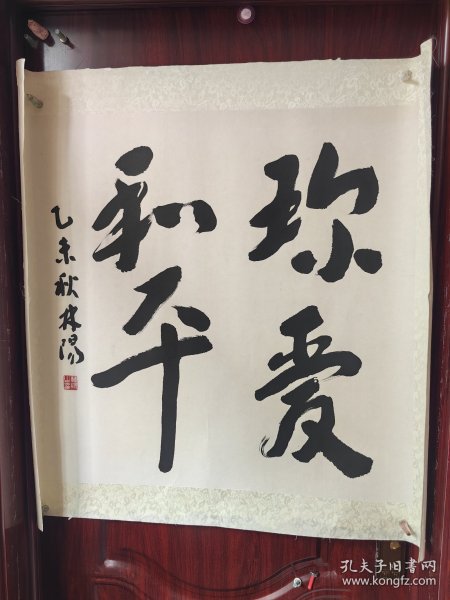 珍爱
和平
乙未秋林阳
孔夫子旧书网
www.kongfz.com